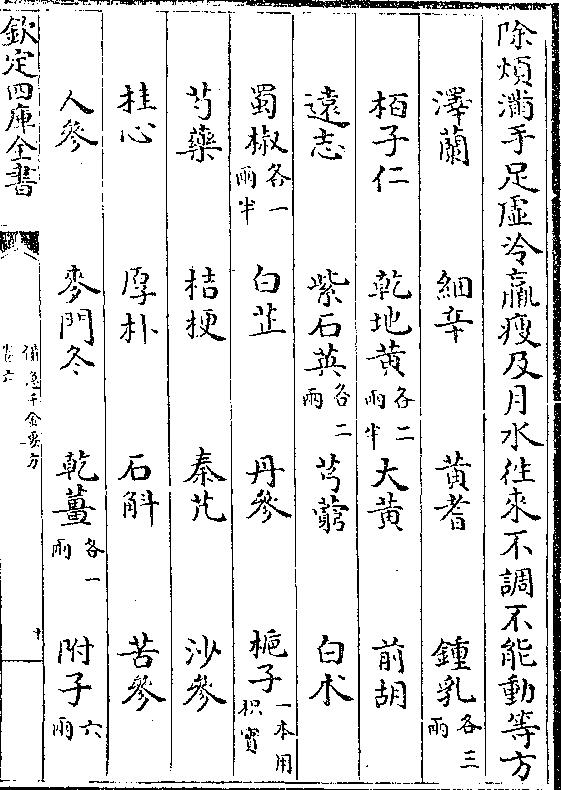 除煩滿手足虛冷羸瘦及月水徃來不調不能動等方
澤蘭 細辛 黄耆 鍾乳各三兩
栢子仁 乾地黄各二兩半 大黄 前胡
遠志 紫石英各二兩 芎藭 白朮
蜀椒各一兩半 白芷 丹參 梔子一本用枳實
芍藥 桔梗 秦艽 沙參
桂心 厚朴 石斛 苦參
人參 麥門冬 乾薑各一兩 附子六兩
欽定四庫全書
備急千金要方
卷六
十